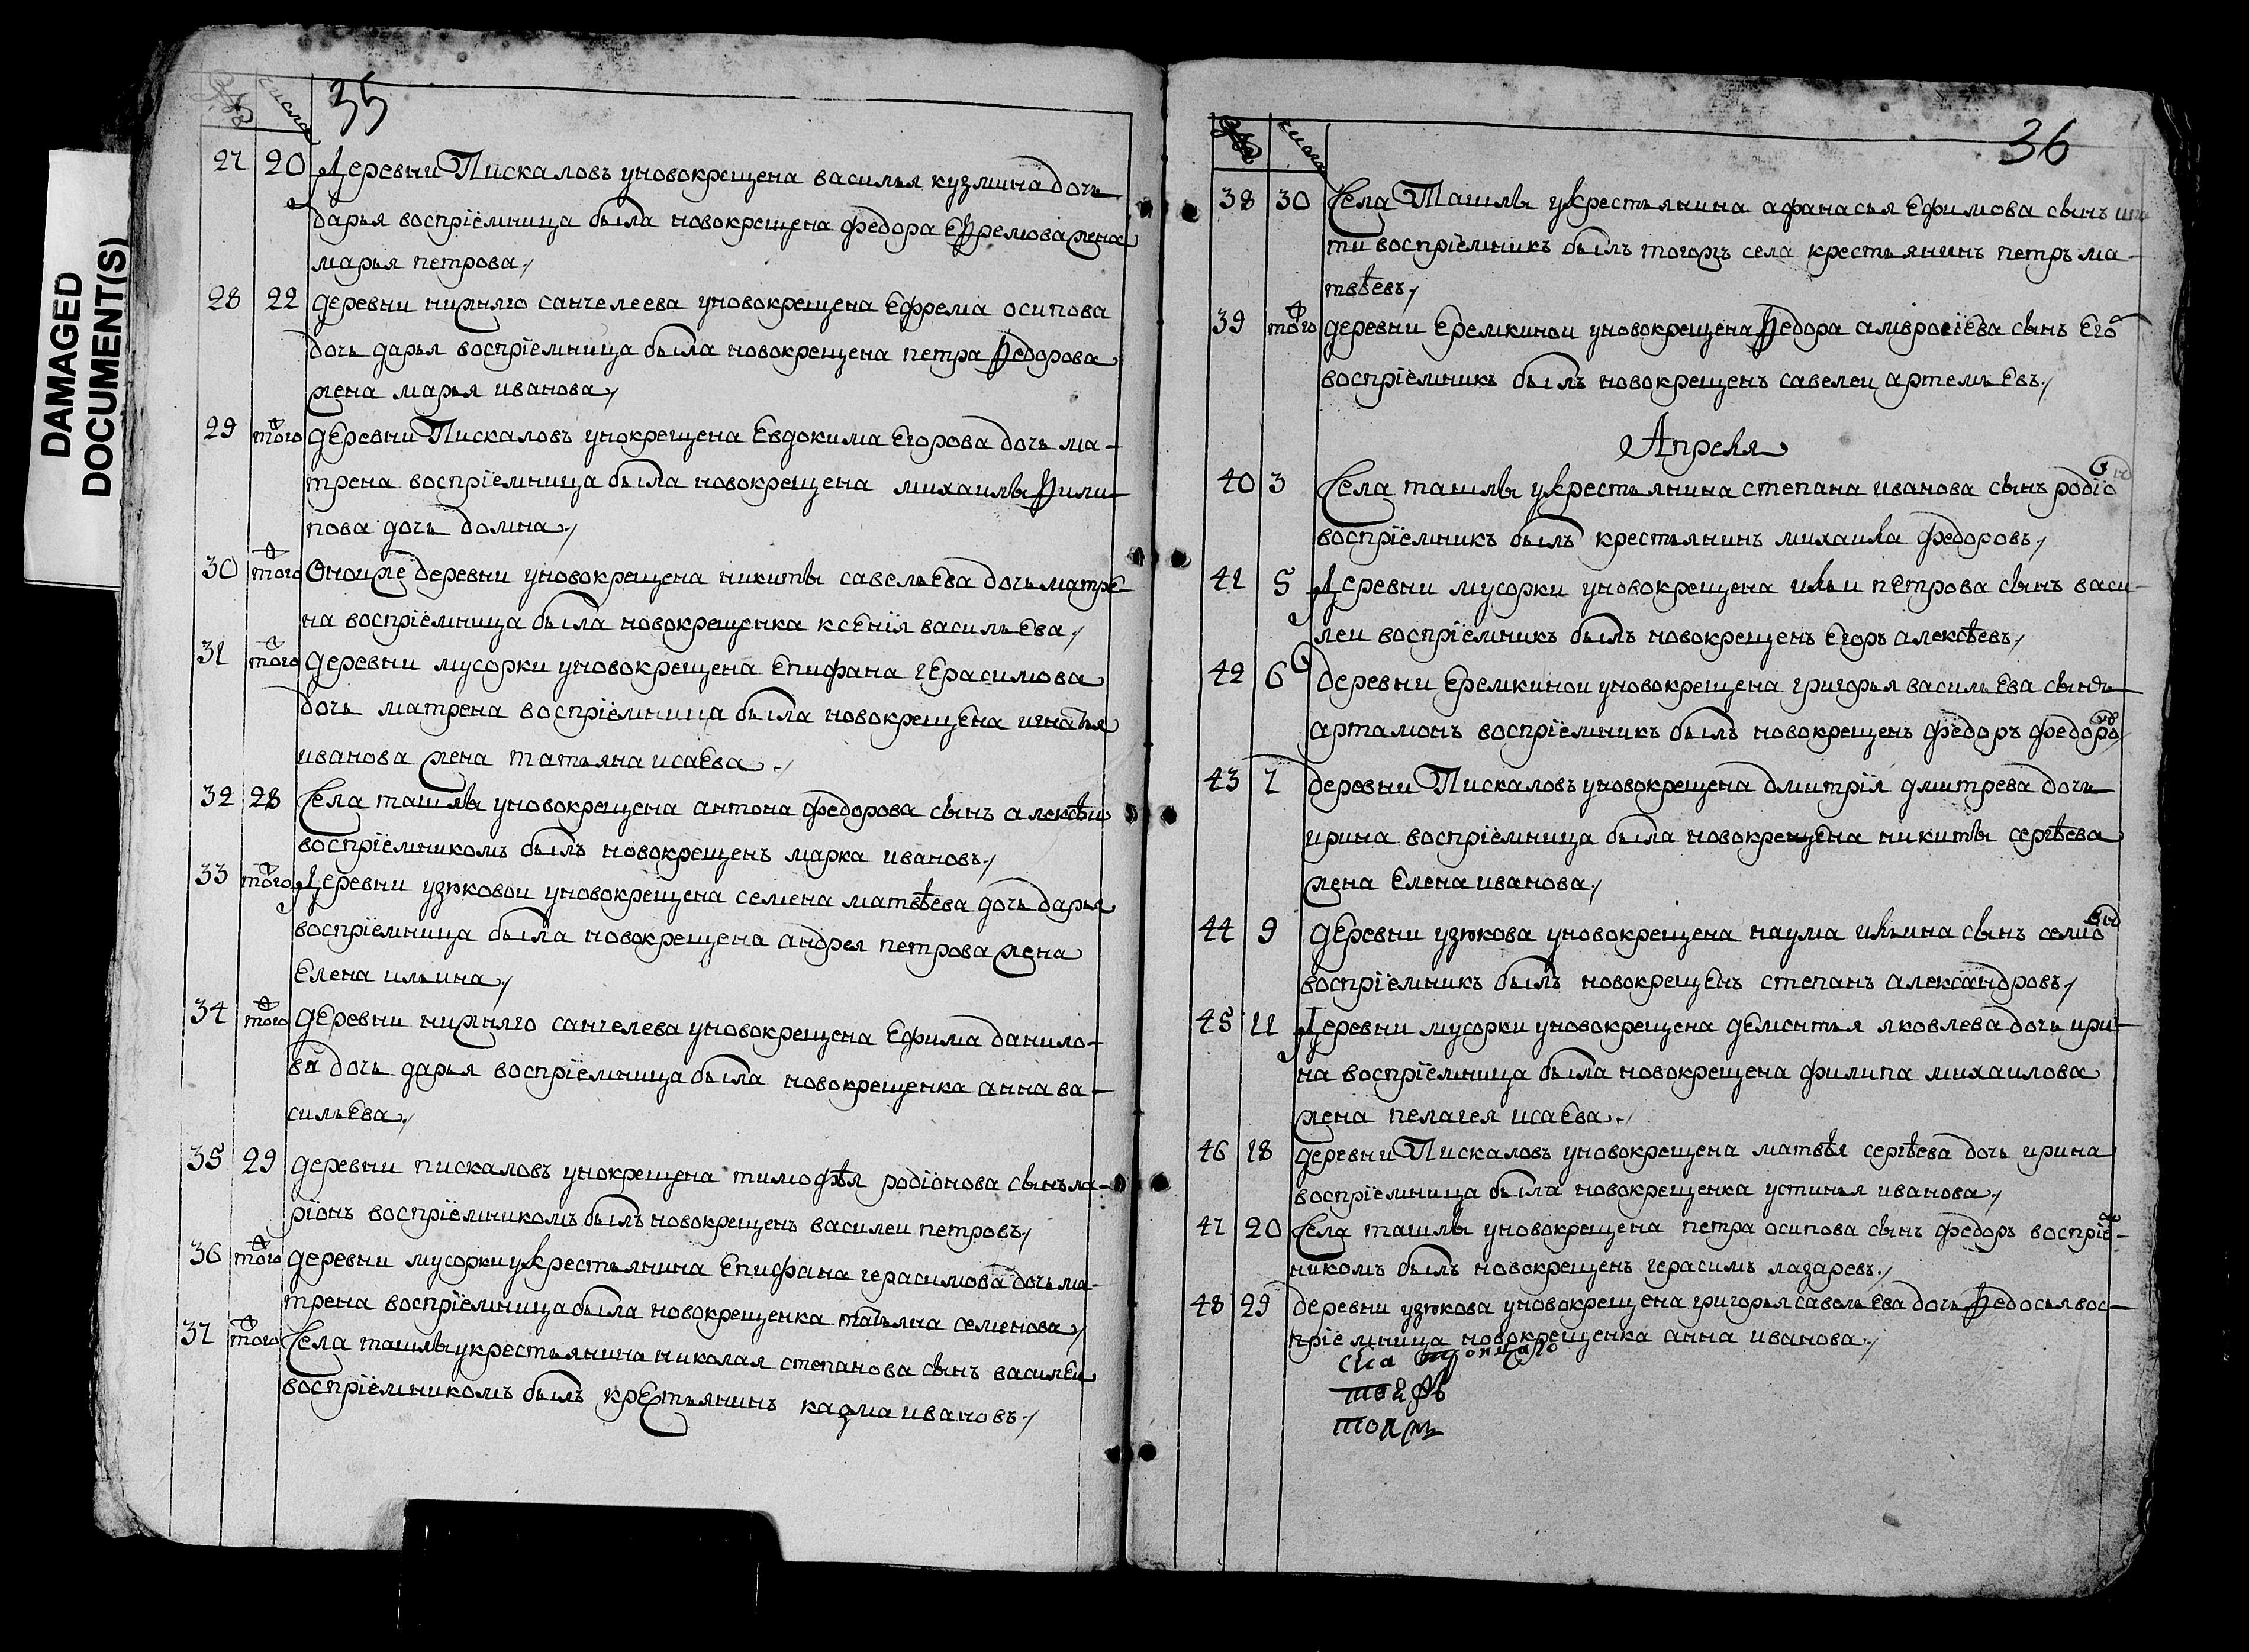 DAMAGED
DOCUMENT(S)
числа 35
27 20 Деревни Пискаловъ уновокрещена василья кузмина дочь
дарья воспріемница была новокрещена федора Ефремова жена
марья петрова
28 22 деревни нижняго санчелеева уновокрещена Ефрема осипова
дочь дарья воспріемница была новокрещена петра федорова
жена марья иванова
29 того деревни Пискаловъ унокрещена Евдокима Егорова дочь ма-
трена воспріемница была новокрещена михаилы фили-
пова дочь домна
30 того Оноиже деревни уновокрещена никиты савельева дочь матре-
на воспріемница была новокрещенка ксенія васильева
31 того деревни мусорки уновокрещена Епифана герасимова
дочь матрена воспріемница была новокрещена игнатья
иванова жена татьяна исаева
32 28 Села ташлы уновокрещена антона федорова сынъ алексѣи
воспріемникомъ былъ новокрещенъ марка ивановъ
33 того Деревни узюковои уновокрещена семена матвѣева дочь дарья
воспріемница была новокрещена андрея петрова жена
Елена ильина
34 того деревни нижняго санчелева уновокрещена Ефима данило-
ва дочь дарья воспріемница была новокрещенка анна ва-
сильева
35 29 деревни пискаловъ унокрещена тимофѣя родіонова сынъ ла-
ріонъ воспріемникомъ былъ новокрещенъ василеи петровъ
36 того деревни мусорки укрестьянина Епифана герасимова дочь ма-
трена воспріемница была новокрещенка татьяна семенова
37 того Села ташлы укрестьянина николая степанова сынъ василеи
воспріемникомъ былъ крестьянинъ казма ивановъ
числа 36
38 30 Села Ташлы укрестьянина афанасья Ефимова сынъ ипа
ти воспріемникъ былъ тогожъ села крестьянинъ петръ ма-
твѣевъ
39 того деревни Еремкинои уновокрещена федора амвросіева сынъ Его
воспріемникъ былъ новокрещенъ савелеи артемьевъ
Апреля
40 3 Села ташлы укрестьянина степана иванова сынъ родіо
воспріемникъ былъ крестьянинъ михаила федоровъ
41 5 Деревни мусорки уновокрещена ильи петрова сынъ васи-
леи воспріемникъ былъ новокрещенъ Егоръ алексѣевъ
42 6 деревни Еремкинои уновокрещена григорья васильева сынъ
артамонъ воспріемникъ былъ новокрещенъ федоръ федоровъ
43 7 деревни Пискаловъ уновокрещена дмитрія дмитрева дочь
ирина воспріемница была новокрещена никиты сергѣева
жена Елена иванова
44 9 деревни узюкова уновокрещена наума ильина сынъ семионъ
воспріемникъ былъ новокрещенъ степанъ александровъ
45 11 Деревни мусорки уновокрещена дементья яковлева дочь ири-
на воспріемница была новокрещена филипа михаилова
жена пелагея исаева
46 18 деревни Пискаловъ уновокрещена матвѣя сергѣева дочь ирина
воспріемница была новокрещенка устинья иванова
47 20 Села ташлы уновокрещена петра осипова сынъ федоръ воспріем-
никомъ былъ новокрещенъ герасимъ лазаревъ
48 29 деревни узюкова уновокрещена григорья савельева дочь федосья вос-
пріемница новокрещенка анна иванова